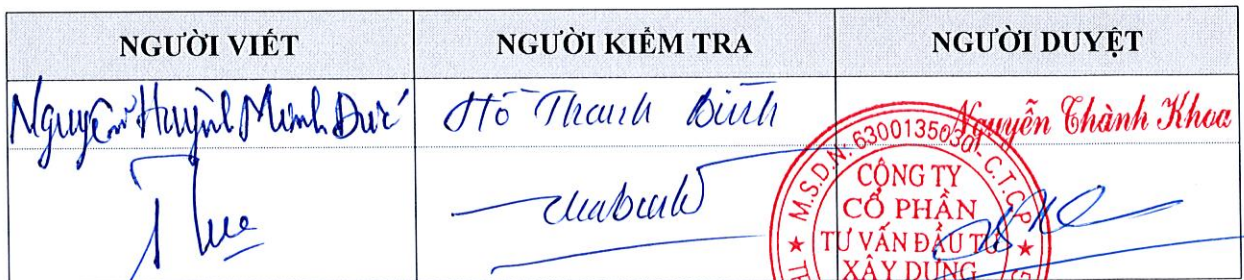 NGƯỜI VIẾT NGƯỜI KIỂM TRA NGƯỜI DUYỆT
Nguyễn Huỳnh Minh Đức Hồ Thanh Bình Nguyễn Thành Khoa
M.S.D.N: 6300135030 - C.T.C.P
CÔNG TY
CỔ PHẦN
TƯ VẤN ĐẦU TƯ
XÂY DỰNG